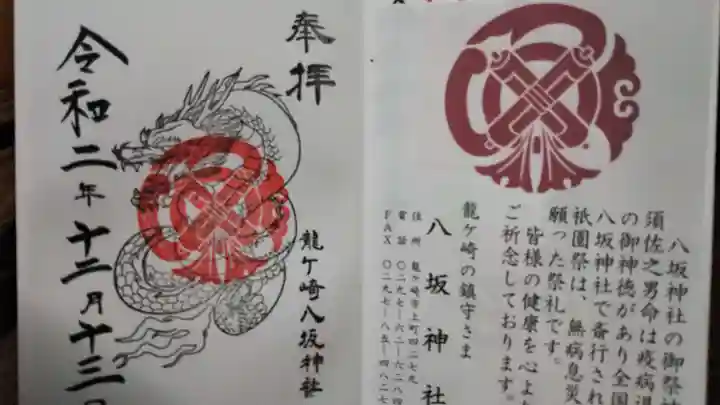 奉拝
龍ケ崎八坂神社
令和二年十二月十三日
八坂神社の御祭神
須佐之男命は疫病退
の御神徳があり全国
八坂神社で斎行され
祇園祭は、無病息災
願った祭礼です。
皆様の健康を心より
ご祈念しております。
龍ケ崎の鎮守さま
八坂神社
住所 龍ケ崎市上町四二七九
電話 〇二九七-六二-六二八四
FAX 〇二九七-八五-四八二